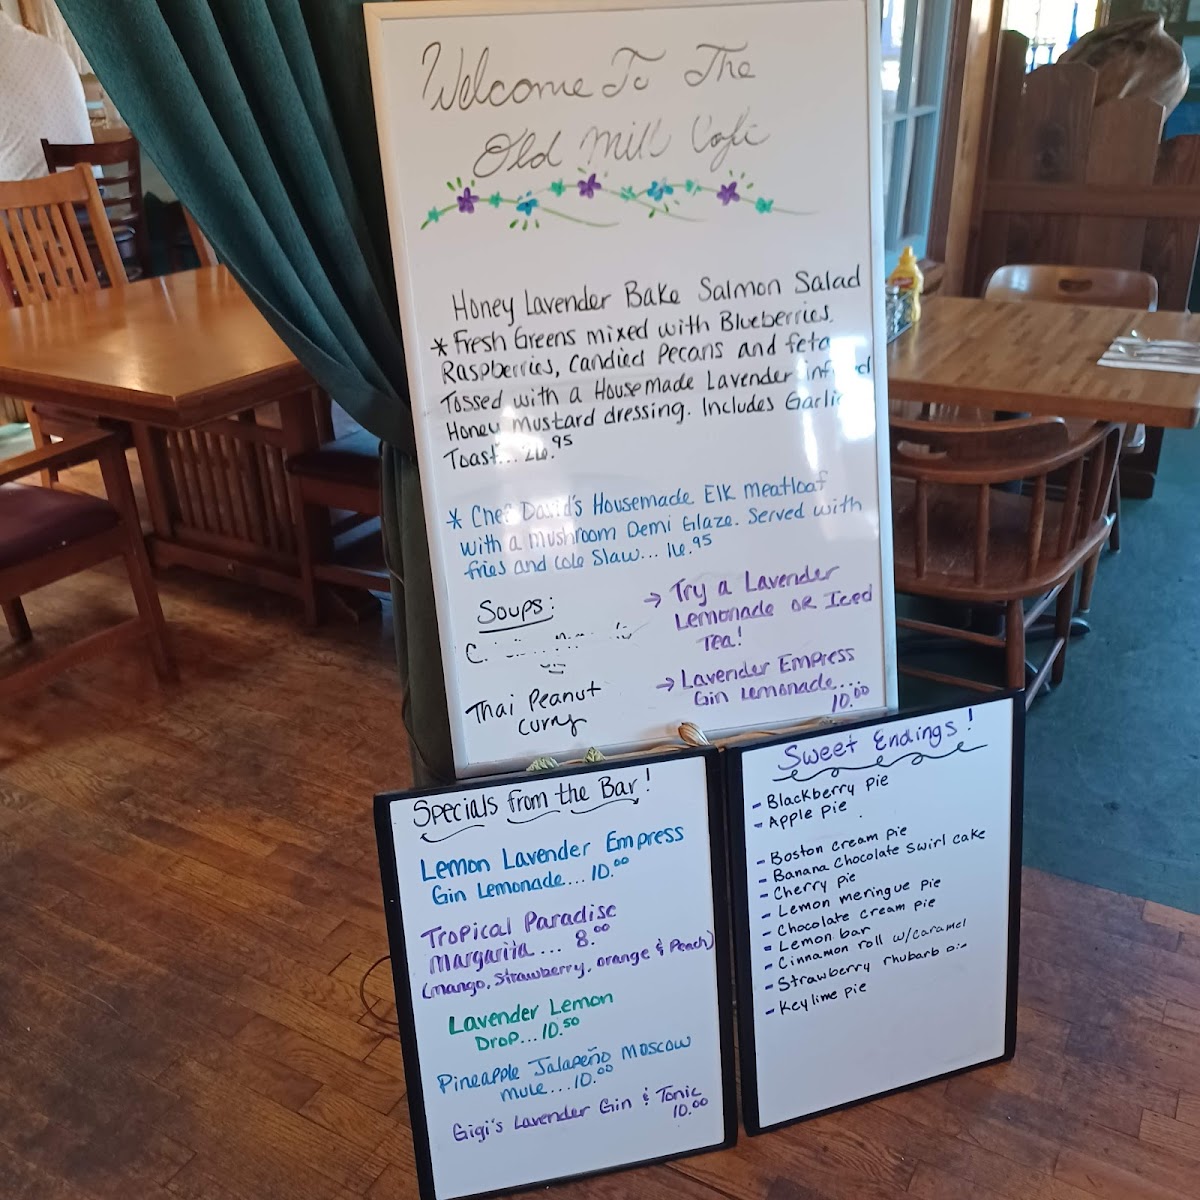 Welcome To The
Old Mill Café
Honey Lavender Bake Salmon Salad
* Fresh Greens mixed with Blueberries.
Raspberries, Candied Pecans and feta
Tossed with a Housemade Lavender
Honey Mustard dressing. Includes Garlic
Toast...
* Chef David's Housemade Elk meatloaf
with a mushroom Demi Glaze. Served with
fries and cole slaw... 16.95
Soups:
C.
Thai Peanut
Curry
→ Try a Lavender
Lemonade OR Iced
Tea!
→ Lavender Empress
Gin Lemonade...
10.00
Specials from the Bar!
Lemon Lavender Empress
Gin Lemonade... 10.00
Tropical Paradise
Margarita ... 8.00
(mango, Strawberry, orange & Peach)
Lavender Lemon
Drop... 10.50
Pineapple Jalapeño Moscow
mule... 10.00
Gigi's Lavender Gin & Tonic
10.00
Sweet Endings!
- Blackberry pie
- Apple pie
- Boston cream pie
- Banana chocolate swirl cake
- Cherry pie
- Lemon meringue pie
- Chocolate cream pie
- Lemon bar
- Cinnamon roll w/caramel
- Strawberry rhubarb pie
- Key lime pie